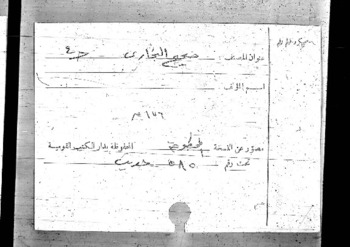 ميكروفلم رقم
عنوان المصنف : صحيح البخارى جـ ٤
اسم المؤلف :
١٥٦ ص
مصور عن النسخة المخطوطة المحفوظة بدار الكتب القومية
تحت رقم ٥٨٥ حديث